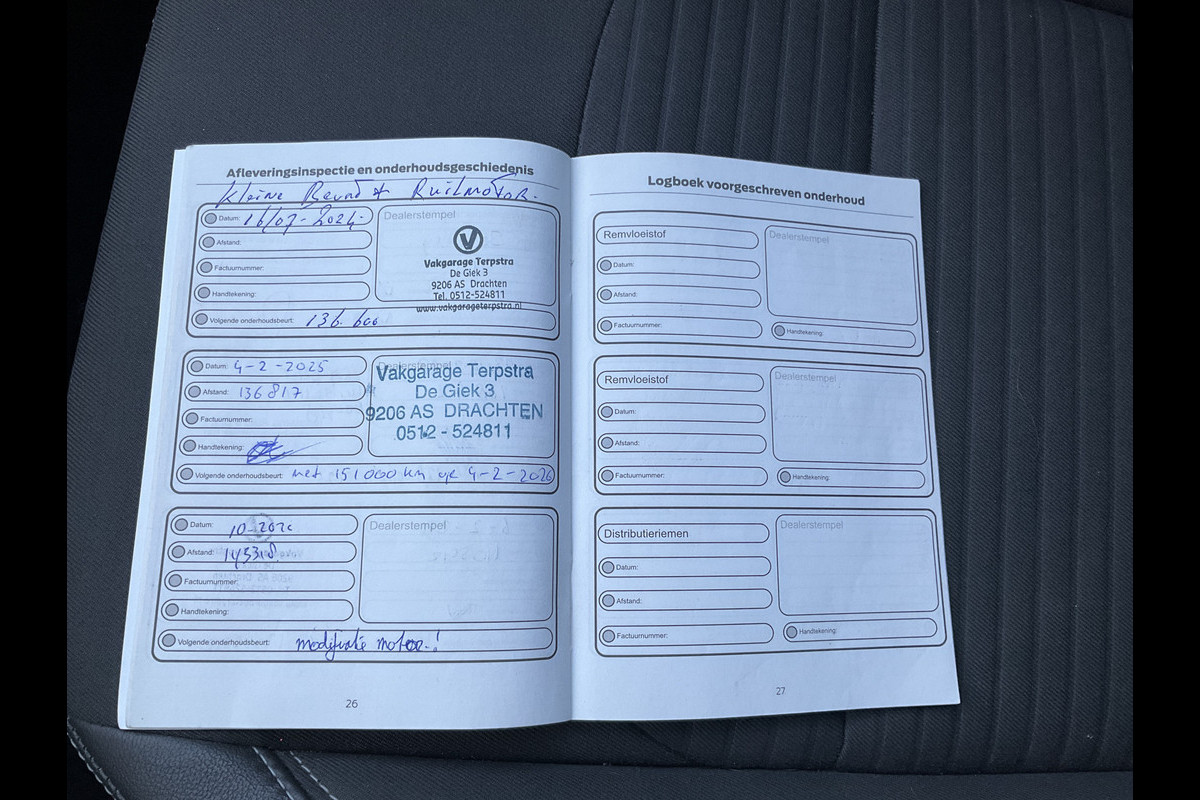 Afleveringsinspectie en onderhoudsgeschiedenis
Kleine Beurt + Ruilmotor.
Datum: 16/07-2024-
Afstand:
Factuurnummer:
Handtekening:
Volgende onderhoudsbeurt: 136.600
Dealerstempel
Vakgarage Terpstra
De Giek 3
9206 AS Drachten
Tel. 0512-524811
www.vakgarageterpstra.nl
Datum: 4-2-2025
Afstand: 136817
Factuurnummer:
Handtekening:
Volgende onderhoudsbeurt: met 151000 km of 4-2-2026
Vakgarage Terpstra
De Giek 3
9206 AS DRACHTEN
0512 - 524811
Datum:
Afstand:
Factuurnummer:
Handtekening:
Volgende onderhoudsbeurt: modificatie motor.!
Dealerstempel
26
Logboek voorgeschreven onderhoud
Remvloeistof
Datum:
Afstand:
Factuurnummer:
Dealerstempel
Handtekening:
Remvloeistof
Datum:
Afstand:
Factuurnummer:
Dealerstempel
Handtekening:
Distributieriemen
Datum:
Afstand:
Factuurnummer:
Dealerstempel
Handtekening:
27